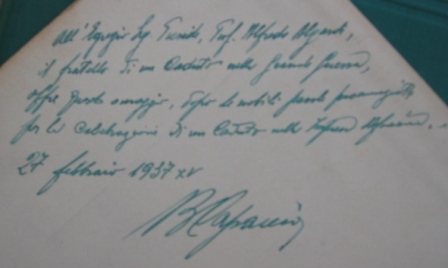 All'Egregio Sig. Tenente, Prof. Alfredo
il fratello di un Caduto nella Grande Guerra,
offre questo omaggio, dopo le nobili parole pronunziate
per la celebrazione di un Caduto nella
27 febbraio 1937 XV